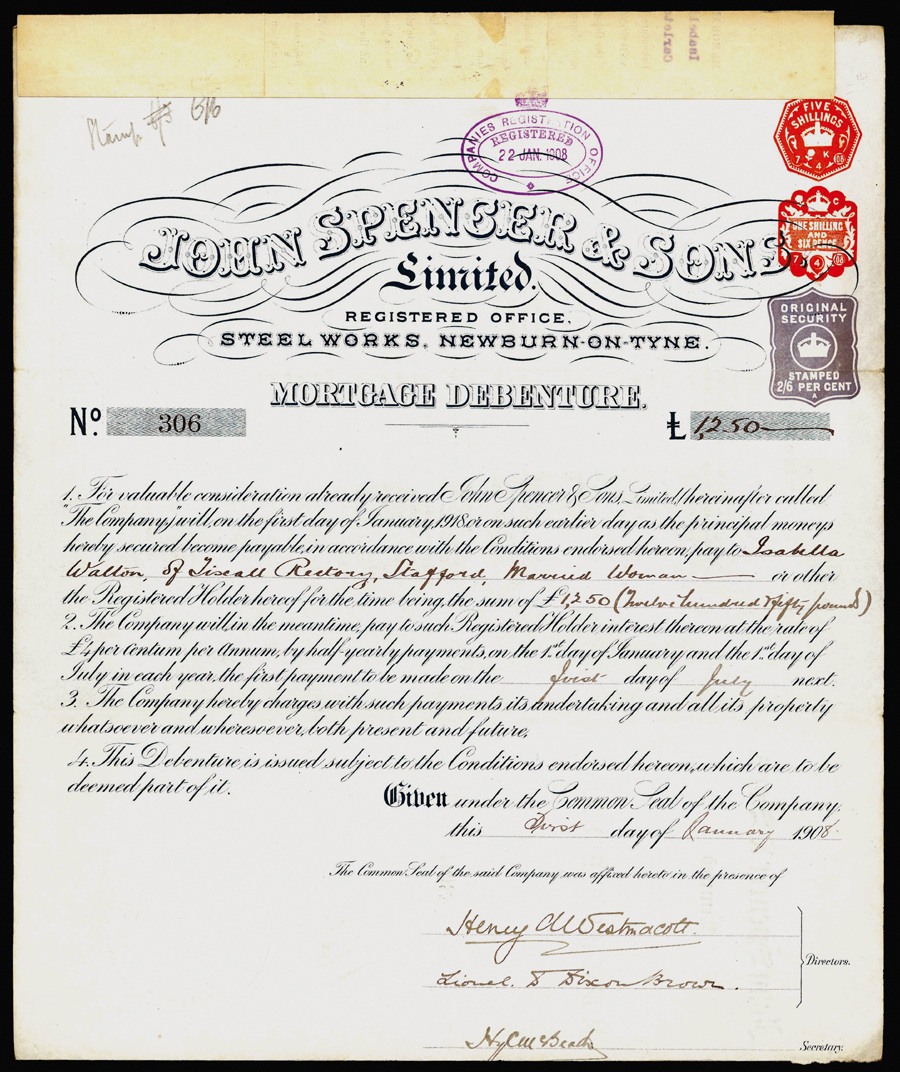 Stamp 6/6
COMPANIES REGISTRATION OFFICE
REGISTERED
22 JAN. 1908
FIVE
SHILLINGS
7 4 08
ONE SHILLING
AND
SIX PENCE
7 4 08
JOHN SPENCER & SONS
Limited.
REGISTERED OFFICE.
STEEL WORKS, NEWBURN-ON-TYNE.
ORIGINAL
SECURITY
STAMPED
2/6 PER CENT
A
MORTGAGE DEBENTURE.
No. 306
£ 1,250
1. For valuable consideration already received John Spencer & Sons, Limited, (hereinafter called
"The Company,") will, on the first day of January, 1918, or on such earlier day as the principal moneys
hereby secured become payable, in accordance with the Conditions endorsed hereon, pay to Isabella
Walton, of Tixall Rectory, Stafford, Married Woman or other
the Registered Holder hereof for the time being, the sum of £1,250 (Twelve hundred & fifty pounds)
2. The Company will, in the meantime, pay to such Registered Holder interest thereon at the rate of
£4 per centum per annum, by half-yearly payments, on the 1st day of January and the 1st day of
July in each year, the first payment to be made on the first day of July next.
3. The Company hereby charges with such payments its undertaking and all its property
whatsoever and wheresoever, both present and future.
4. This Debenture is issued subject to the Conditions endorsed hereon, which are to be
deemed part of it.
Given under the Common Seal of the Company,
this First day of January 1908
The Common Seal of the said Company was affixed hereto in the presence of
Henry A Westmacott.
Lionel. D Dixon Brown.
Directors.
Secretary.